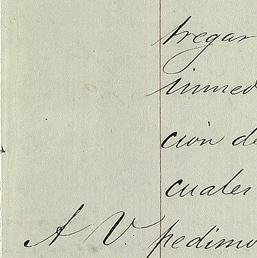 tregar
inmed
ción de
cuales
A V. pedimo